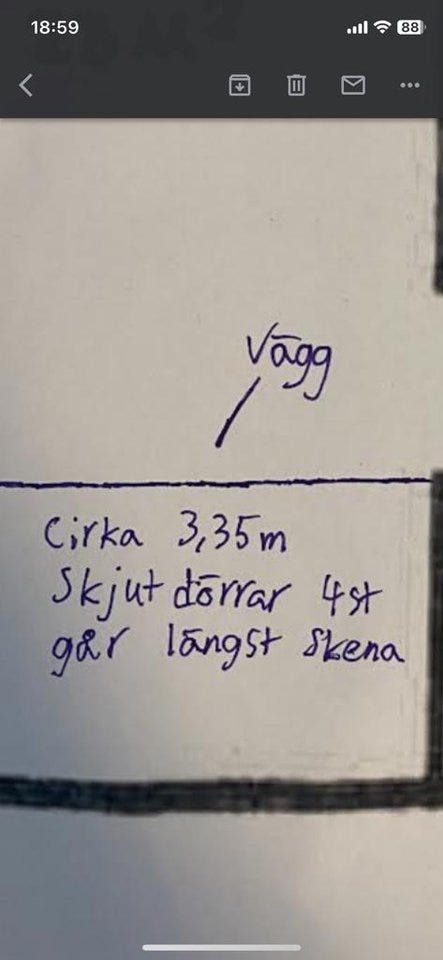 18:59
88
Vägg
Cirka 3,35m
Skjutdörrar 4st
går längst skena